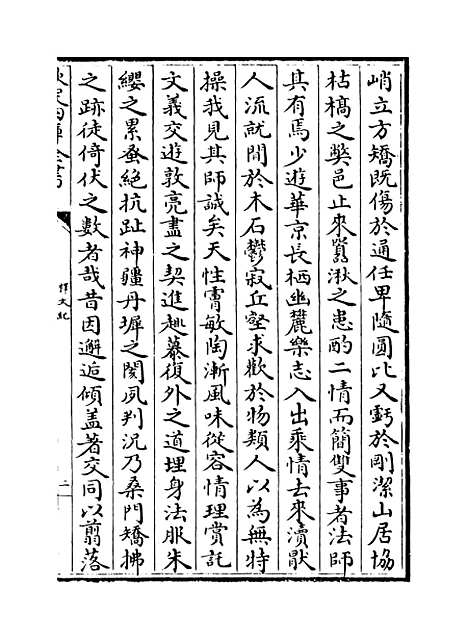 峭立方矯既傷於通任卑隨圓比又虧於剛潔山居協
枯槁之弊邑止來囂湫之患酌二情而簡雙事者法師
其有焉少遊華京長栖幽麓樂志入出乘情去來瀆厭
人流就閒於木石鬱寂丘壑求歡於物類人以為無特
操我見其師誠矣天性膏敏陶漸風味從容情理賞託
文義交遊敦亮盡之契進趣慕復外之道埋身法服朱
纓之累蚤絶抗趾神疆丹墀之闋夙判況乃桑門矯拂
之跡徒倚伏之數者哉昔因邂逅傾盖著交同以翦落
欽定四庫全書
釋文紀
二